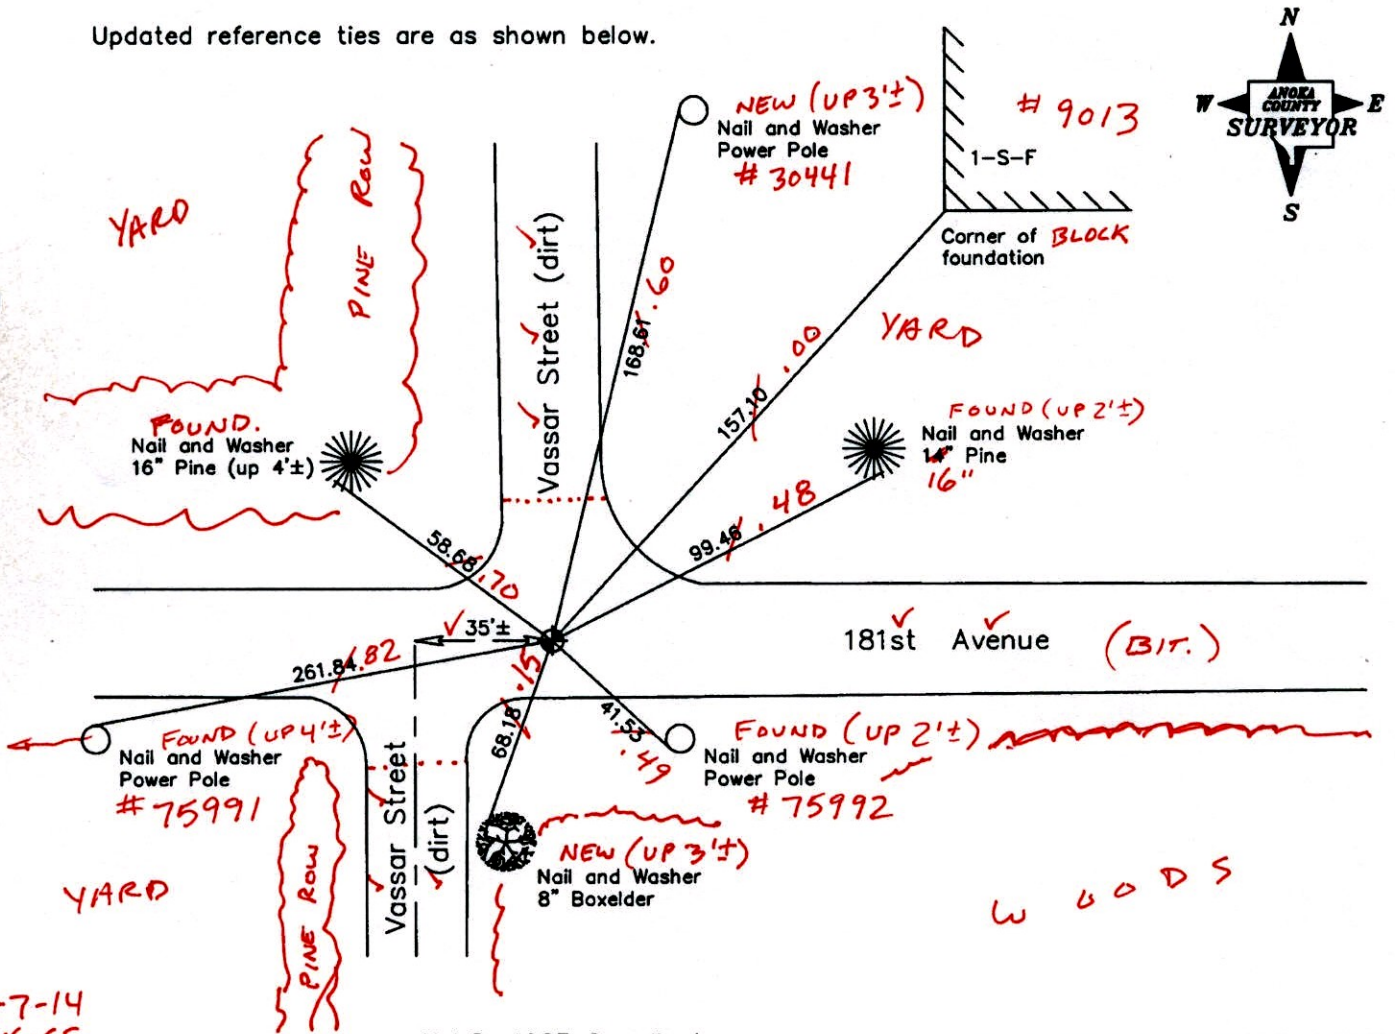 Updated reference ties are as shown below.
N
ANOKA
COUNTY
W E
SURVEYOR
S
NEW (UP 3'±)
Nail and Washer
Power Pole
# 30441
# 9013
1-S-F
Corner of BLOCK
foundation
YARD
PINE ROW
Vassar Street (dirt)
168.61 .60
157.10 .00
YARD
FOUND.
Nail and Washer
16" Pine (up 4'±)
FOUND (UP 2'±)
Nail and Washer
14" Pine
16"
58.68 .70
99.46 .48
35'±
181st Avenue (BIT.)
261.84 .82
68.18 .15
41.53 .49
FOUND (UP 4'±)
Nail and Washer
Power Pole
# 75991
FOUND (UP 2'±)
Nail and Washer
Power Pole
# 75992
Vassar Street
(dirt)
NEW (UP 3'±)
Nail and Washer
8" Boxelder
YARD
PINE ROW
WOODS
-7-14